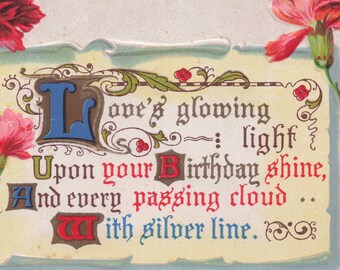 Love's glowing
light
Upon your Birthday shine,
And every passing cloud ..
With silver line.